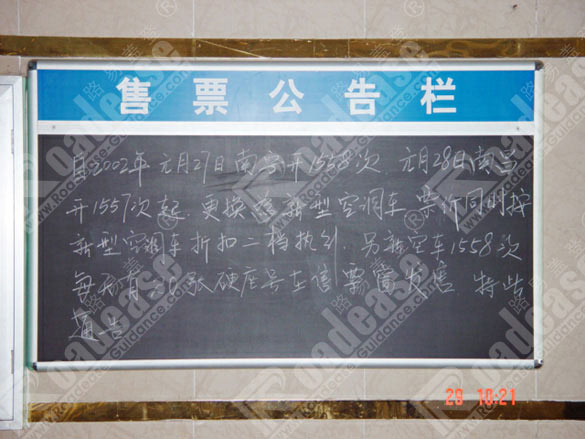 售票公告栏
自2002年元月27日南宁开1558次 元月28日南昌
开1557次起.更换为新型空调车.票价同时按
新型空调车折扣二档执行.另新空车1558次
每天有50张硬座号在售票窗发售.特此
通告
28 10:21
路易善导
Roadease
www.RoadeaseGuidance.com